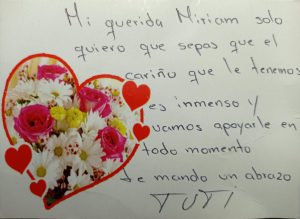 Mi querida Miriam solo
quiero que sepas que el
cariño que le tenemos
es inmenso y
vamos apoyarle en
todo momento
te mando un abrazo
TUTI